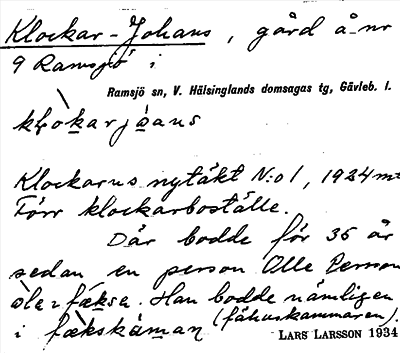 Klockar-Johans, gård å nr
9 Ramsjö i
Ramsjö sn, V. Hälsinglands domsagas tg, Gävleb. l.
klo̱karjàans
Klockarns nytäkt N:o 1, 1924 mt
Förr klockarboställe.
Där bodde för 35 år
sedan en person Olle Person
fæksa. Han bodde nämligen
i fækskáman (fähuskammaren).
LARS LARSSON 1934